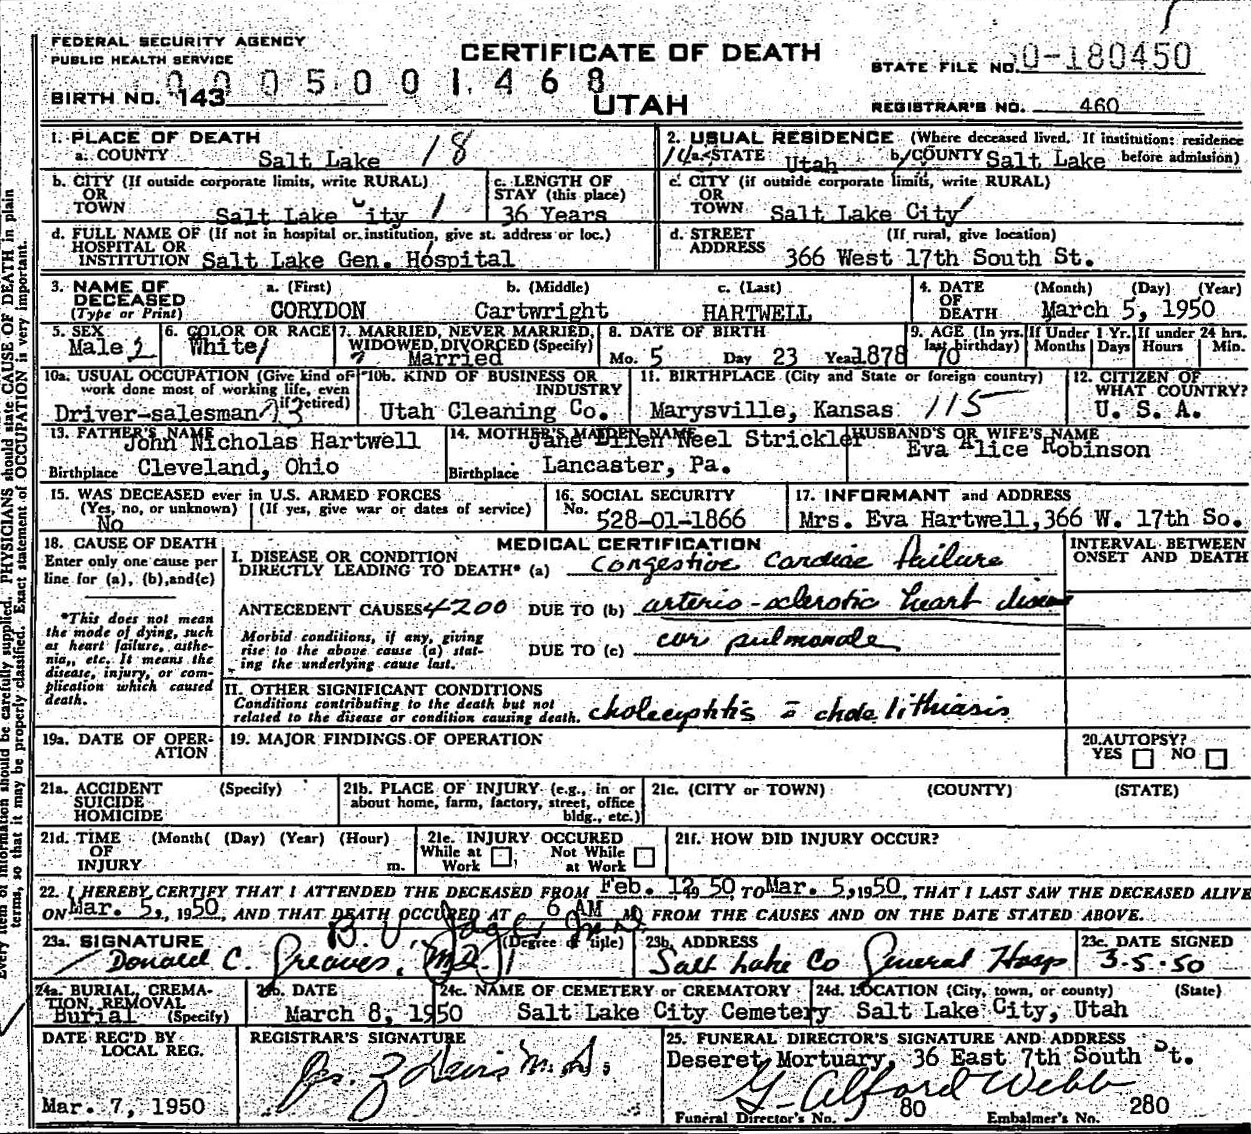 FEDERAL SECURITY AGENCY
PUBLIC HEALTH SERVICE
CERTIFICATE OF DEATH
STATE FILE NO. 50-180450
0005001468
BIRTH NO. 143
UTAH
REGISTRAR'S NO. 460
1. PLACE OF DEATH
a. COUNTY Salt Lake 18
2. USUAL RESIDENCE (Where deceased lived. If institution: residence before admission)
a. STATE Utah b. COUNTY Salt Lake
b. CITY (If outside corporate limits, write RURAL)
OR
TOWN Salt Lake City 1
c. LENGTH OF
STAY (this place)
36 Years
c. CITY (if outside corporate limits, write RURAL)
OR
TOWN Salt Lake City
d. FULL NAME OF (If not in hospital or institution, give st. address or loc.)
HOSPITAL OR
INSTITUTION Salt Lake Gen. Hospital
d. STREET (If rural, give location)
ADDRESS 366 West 17th South St.
3. NAME OF DECEASED (Type or Print)
a. (First) b. (Middle) c. (Last)
CORYDON Cartwright HARTWELL
4. DATE OF DEATH (Month) (Day) (Year)
March 5, 1950
5. SEX
Male 2
6. COLOR OR RACE
White 1
7. MARRIED, NEVER MARRIED, WIDOWED, DIVORCED (Specify)
Married
8. DATE OF BIRTH
Mo. 5 Day 23 Year 1878
9. AGE (In yrs. last birthday)
70
If Under 1 Yr. Months Days
If under 24 hrs. Hours Min.
10a. USUAL OCCUPATION (Give kind of work done most of working life, even if retired)
Driver-salesman 73
10b. KIND OF BUSINESS OR INDUSTRY
Utah Cleaning Co.
11. BIRTHPLACE (City and State or foreign country)
Marysville, Kansas 115
12. CITIZEN OF WHAT COUNTRY?
U. S. A.
13. FATHER'S NAME
John Nicholas Hartwell
Birthplace Cleveland, Ohio
14. MOTHER'S MAIDEN NAME
Jane Ellen Neel Strickler
Birthplace Lancaster, Pa.
HUSBAND'S OR WIFE'S NAME
Eva Alice Robinson
15. WAS DECEASED ever in U.S. ARMED FORCES
(Yes, no, or unknown) (If yes, give war or dates of service)
No
16. SOCIAL SECURITY
No. 528-01-1866
17. INFORMANT and ADDRESS
Mrs. Eva Hartwell, 366 W. 17th So.
18. CAUSE OF DEATH
Enter only one cause per
line for (a), (b), and (c)
*This does not mean
the mode of dying, such
as heart failure, asthe-
nia, etc. It means the
disease, injury, or com-
plication which caused
death.
MEDICAL CERTIFICATION
INTERVAL BETWEEN
ONSET AND DEATH
I. DISEASE OR CONDITION
DIRECTLY LEADING TO DEATH* (a) Congestive Cardiac Failure
ANTECEDENT CAUSES 4200 DUE TO (b) arterio-sclerotic heart disease
Morbid conditions, if any, giving
rise to the above cause (a) stat-
ing the underlying cause last.
DUE TO (c) cor pulmonale
II. OTHER SIGNIFICANT CONDITIONS
Conditions contributing to the death but not
related to the disease or condition causing death. cholecystitis c̄ cholelithiasis
19a. DATE OF OPER-
ATION
19. MAJOR FINDINGS OF OPERATION
20. AUTOPSY?
YES NO
21a. ACCIDENT (Specify)
SUICIDE
HOMICIDE
21b. PLACE OF INJURY (e.g., in or
about home, farm, factory, street, office
bldg., etc.)
21c. (CITY or TOWN) (COUNTY) (STATE)
21d. TIME (Month) (Day) (Year) (Hour)
OF
INJURY m.
21e. INJURY OCCURED
While at Work Not While at Work
21f. HOW DID INJURY OCCUR?
22. I HEREBY CERTIFY THAT I ATTENDED THE DECEASED FROM Feb. 12, 1950, TO Mar. 5, 1950, THAT I LAST SAW THE DECEASED ALIVE
ON Mar. 5, 1950, AND THAT DEATH OCCURED AT 6 AM M FROM THE CAUSES AND ON THE DATE STATED ABOVE.
23a. SIGNATURE (Degree or title)
Donald C. Greaves, (M.D.)
23b. ADDRESS
Salt Lake Co General Hosp
23c. DATE SIGNED
3-5-50
24a. BURIAL, CREMA-
TION, REMOVAL
Burial (Specify)
24b. DATE
March 8, 1950
24c. NAME OF CEMETERY or CREMATORY
Salt Lake City Cemetery
24d. LOCATION (City, town, or county) (State)
Salt Lake City, Utah
DATE REC'D BY
LOCAL REG.
Mar. 7, 1950
REGISTRAR'S SIGNATURE
25. FUNERAL DIRECTOR'S SIGNATURE AND ADDRESS
Deseret Mortuary, 36 East 7th South St.
G. Alford Webb
Funeral Director's No. 80 Embalmer's No. 280
Every item of information should be carefully supplied. PHYSICIANS should state CAUSE OF DEATH in plain
terms, so that it may be properly classified. Exact statement of OCCUPATION is very important.